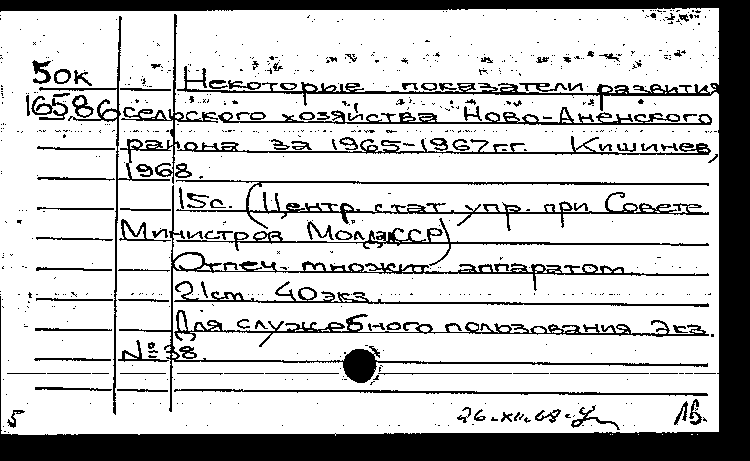 50к Некоторые показатели развития
16586 сельского хозяйства Ново-Аненского
района за 1965-1967гг. Кишинев,
1968.
15с. (Центр. стат. упр. при Совете
Министров МолдССР)
Отпеч. множит. аппаратом
21ст. 40экз.
Для служебного пользования Экз.
№38.
5 26.XII.68. ЛВ.